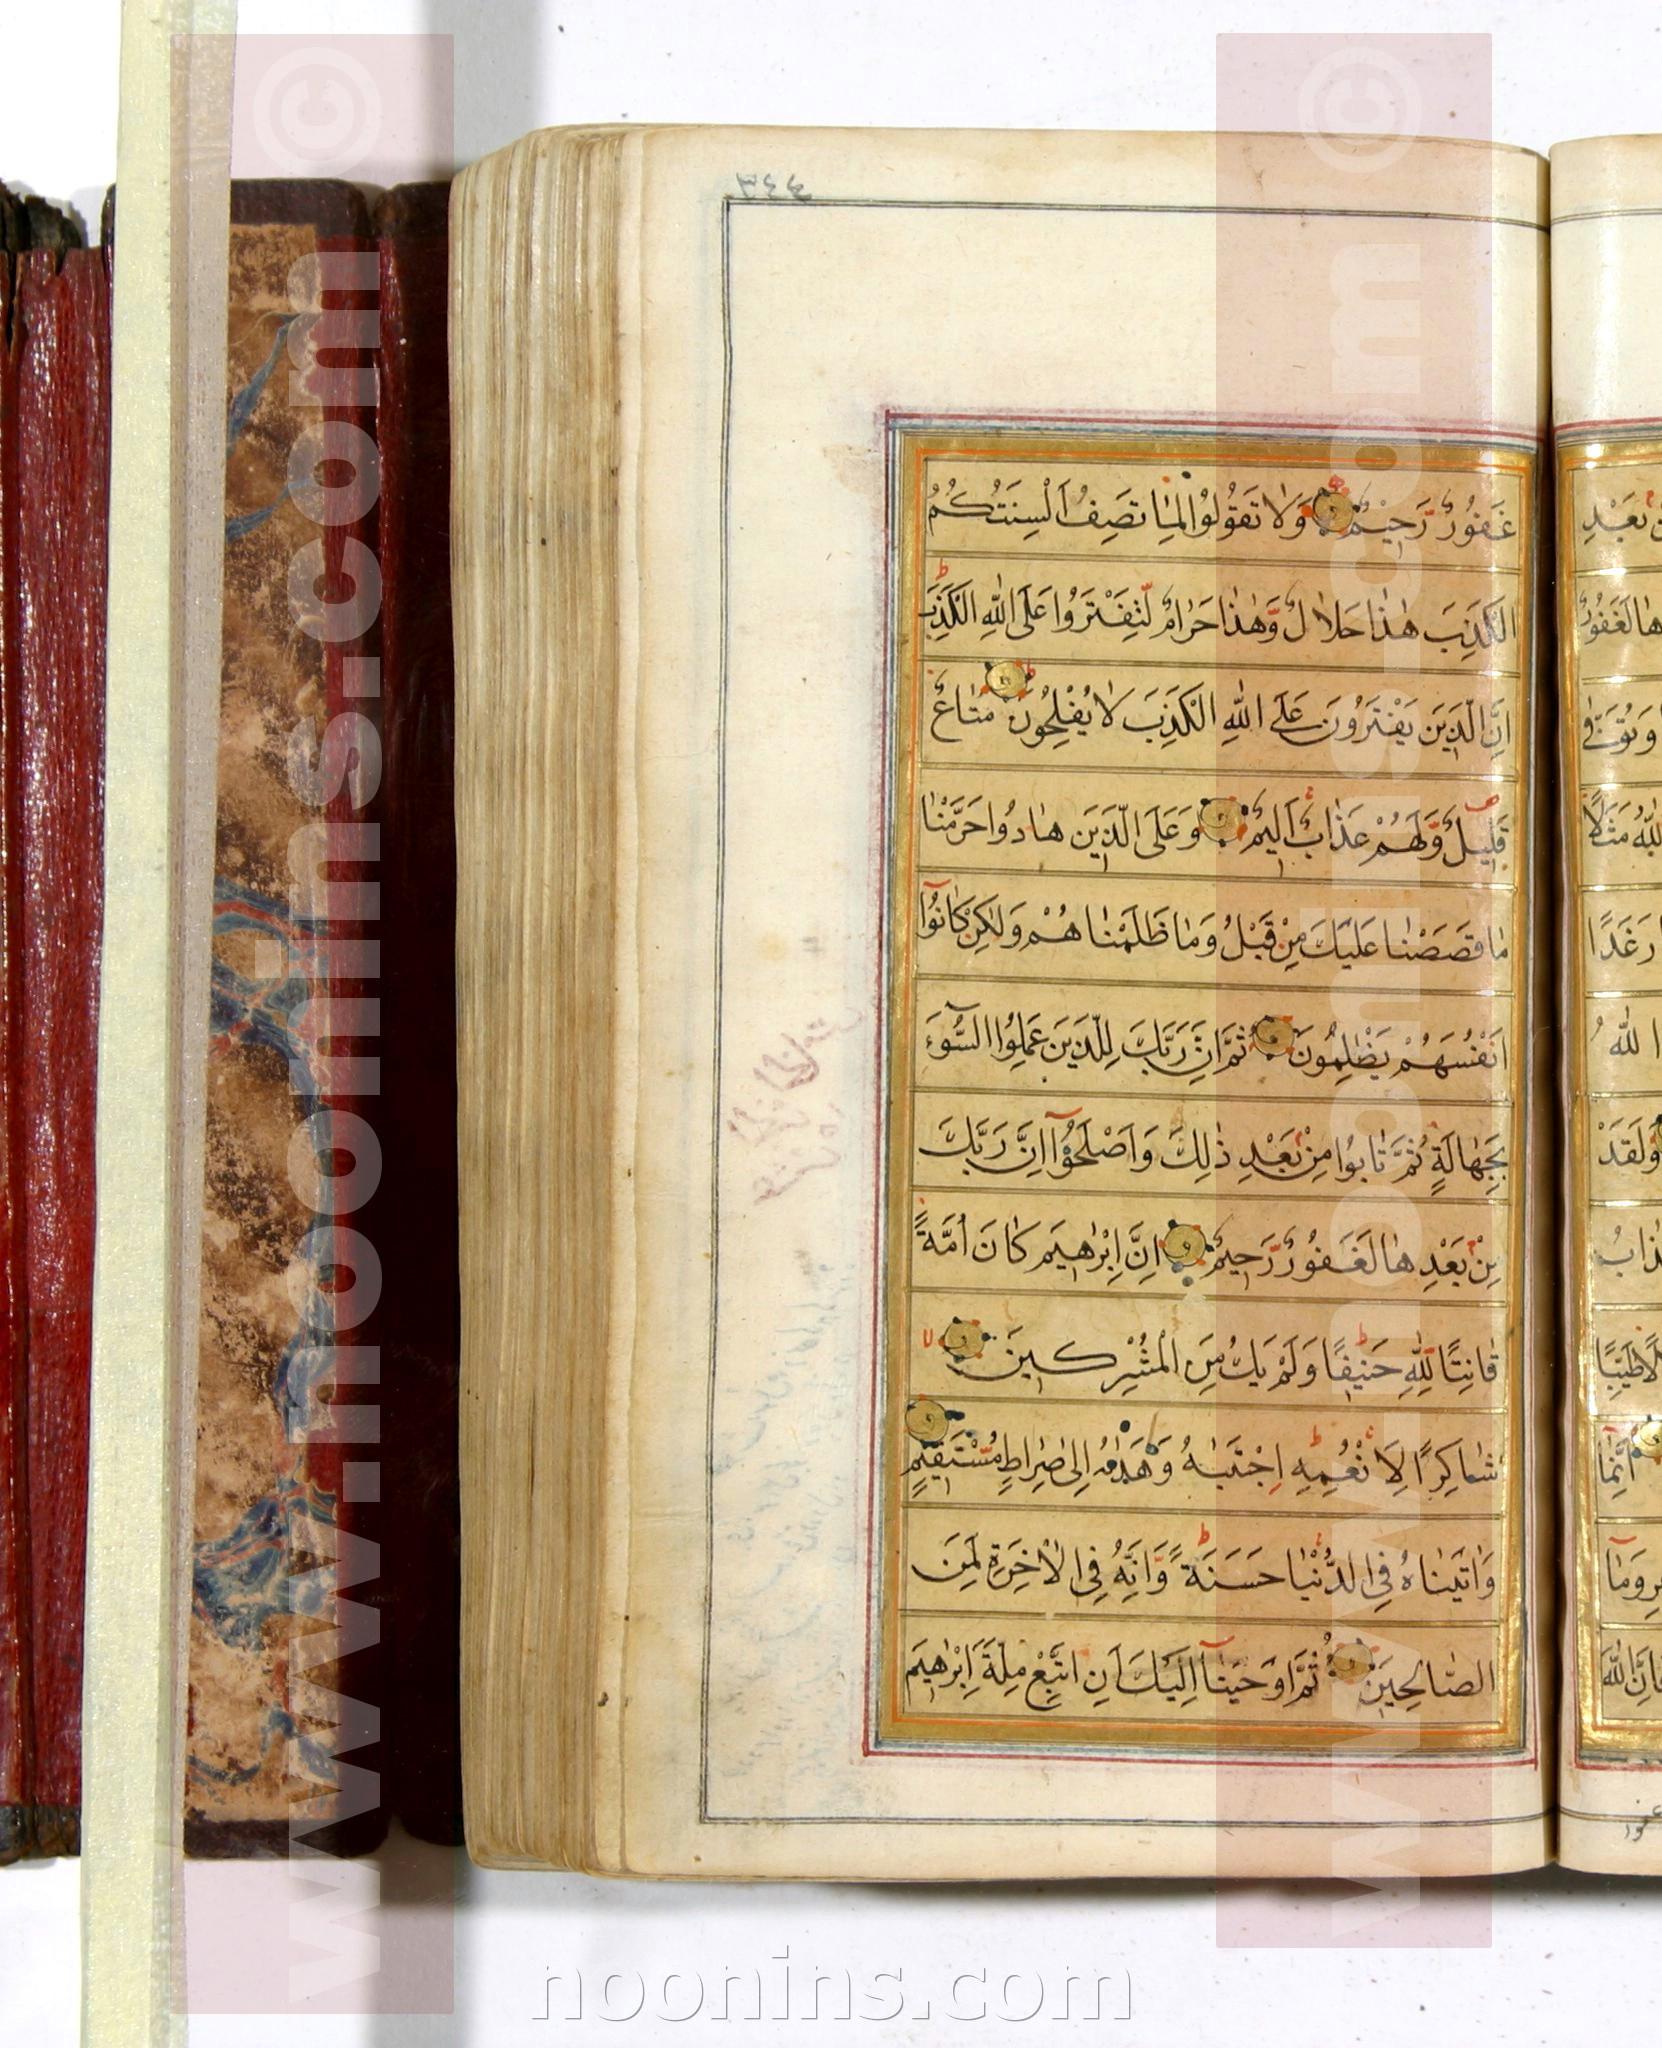 غَفُورٌ رَّحِيمٌ وَلَا تَقُولُوا لِمَا تَصِفُ اَلْسِنَتُكُمُ
الْكَذِبَ هٰذَا حَلَالٌ وَّهٰذَا حَرَامٌ لِّتَفْتَرُوا عَلَى اللّٰهِ الْكَذِبَ
اِنَّ الَّذِينَ يَفْتَرُونَ عَلَى اللّٰهِ الْكَذِبَ لَا يُفْلِحُونَ مَتَاعٌ
قَلِيلٌ وَّلَهُمْ عَذَابٌ اَلِيمٌ وَعَلَى الَّذِينَ هَادُوا حَرَّمْنَا
مَا قَصَصْنَا عَلَيْكَ مِنْ قَبْلُ وَمَا ظَلَمْنَاهُمْ وَلٰكِنْ كَانُوٓا
اَنْفُسَهُمْ يَظْلِمُونَ ثُمَّ اِنَّ رَبَّكَ لِلَّذِينَ عَمِلُوا السُّوٓءَ
بِجَهَالَةٍ ثُمَّ تَابُوا مِنْ بَعْدِ ذٰلِكَ وَاَصْلَحُوٓا اِنَّ رَبَّكَ
مِنْ بَعْدِهَا لَغَفُورٌ رَّحِيمٌ اِنَّ اِبْرٰهِيمَ كَانَ اُمَّةً
قَانِتًا لِلّٰهِ حَنِيفًا وَلَمْ يَكُ مِنَ الْمُشْرِكِينَ
شَاكِرًا لِاَنْعُمِهِ اِجْتَبٰهُ وَهَدٰهُ اِلٰى صِرَاطٍ مُّسْتَقِيمٍ
وَاٰتَيْنَاهُ فِي الدُّنْيَا حَسَنَةً وَّاِنَّهُ فِي الْاٰخِرَةِ لَمِنَ
الصَّالِحِينَ ثُمَّ اَوْحَيْنَآ اِلَيْكَ اَنِ اتَّبِعْ مِلَّةَ اِبْرٰهِيمَ
بَعْدِ
هَا لَغَفُورٌ
وَتُوَفّٰى
اللّٰهُ مَثَلًا
رَغَدًا
اللّٰهُ
وَلَقَدْ
طَيِّبًا
اِنَّمَا
وَمَآ
فَاِنَّ اللّٰهَ
www.noonins.com ©
www.noonins.com ©
noonins.com